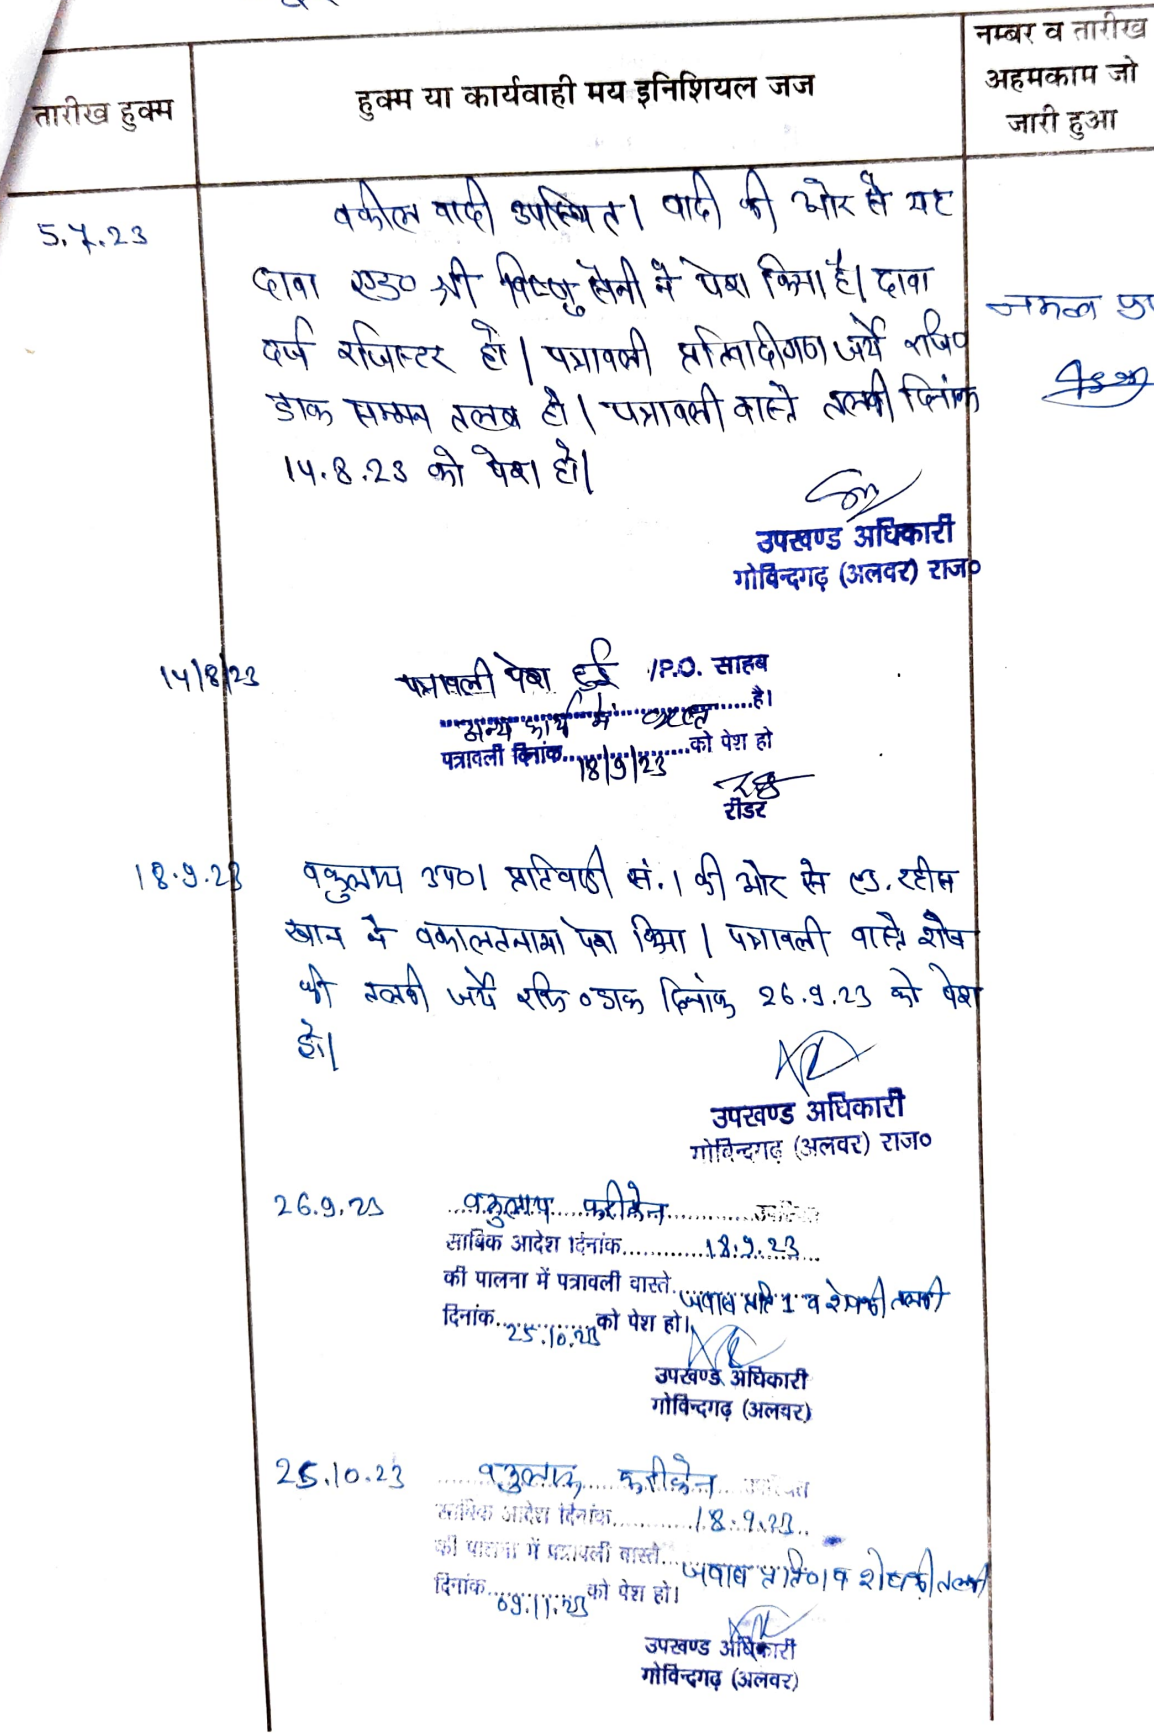 तारीख हुक्म
हुक्म या कार्यवाही मय इनिशियल जज
नम्बर व तारीख
अहमकाम जो
जारी हुआ
5.7.23
वकील वादी उपस्थित। वादी की ओर से यह
दावा एड० श्री विष्णु सैनी ने पेश किया है। दावा
दर्ज रजिस्टर हो। पत्रावली प्रतिवादीगण जर्ये रजि०
डाक सम्मन तलब हो। पत्रावली वास्ते तलबी दिनांक
14.8.23 को पेश हो।
उपखण्ड अधिकारी
गोविन्दगढ़ (अलवर) राज०
14/8/23
पत्रावली पेश हुई /P.O. साहब
अन्य कार्य में व्यस्त है।
पत्रावली दिनांक 18/9/23 को पेश हो
रीडर
18.9.23
वकुलाय उप०। प्रतिवादी सं.1 की ओर से एड. रहीस
खान ने वकालतनामा पेश किया। पत्रावली वास्ते शेष
की तलबी जर्ये रजि० डाक दिनांक 26.9.23 को पेश
हो।
उपखण्ड अधिकारी
गोविन्दगढ़ (अलवर) राज०
26.9.23
वकुलाय फरीकेन उपस्थित
साबिक आदेश दिनांक 18.9.23
की पालना में पत्रावली वास्ते जवाब प्रति 1 व शेष की तलबी
दिनांक 25.10.23 को पेश हो।
उपखण्ड अधिकारी
गोविन्दगढ़ (अलवर)
25.10.23
वकुलाय फरीकेन उपस्थित
साबिक आदेश दिनांक 18.9.23
की पालना में पत्रावली वास्ते जवाब प्रति० व शेष की तलबी
दिनांक 09.11.23 को पेश हो।
उपखण्ड अधिकारी
गोविन्दगढ़ (अलवर)